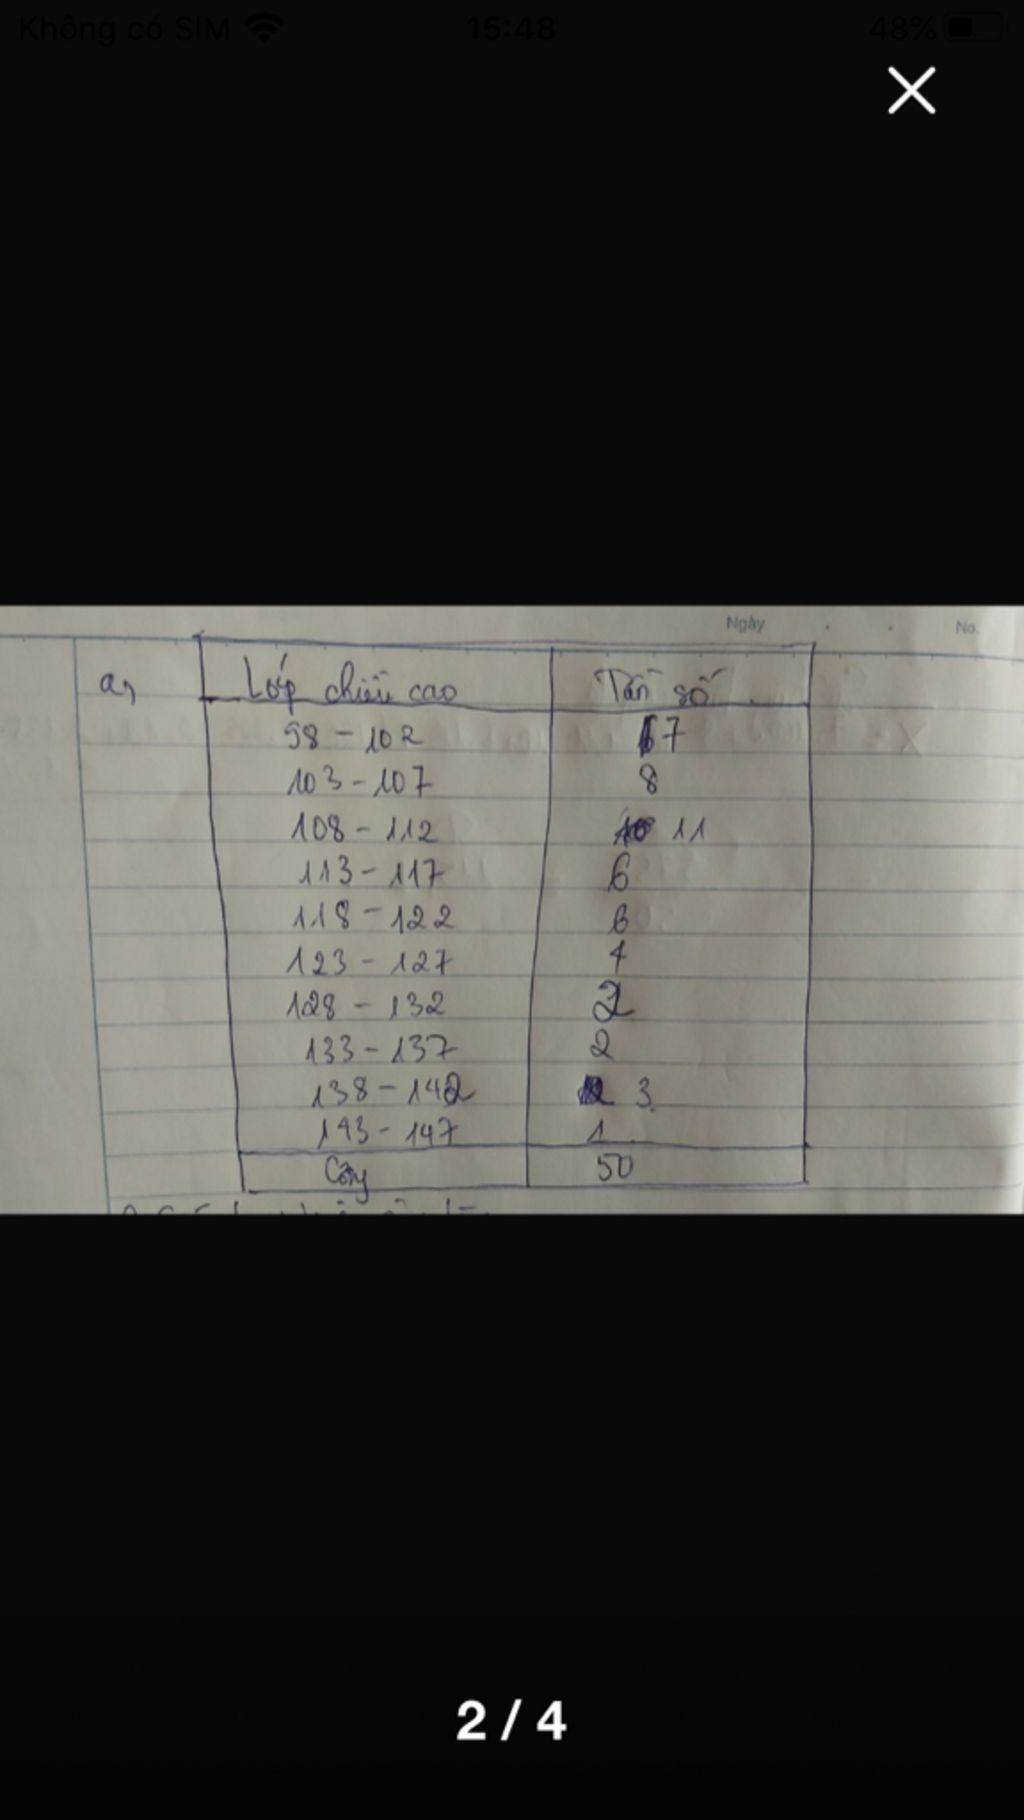 Không có SIM 15:48 48%
Ngày No.
a, Lớp chiều cao Tần số
98 - 102 7
103 - 107 8
108 - 112 11
113 - 117 6
118 - 122 6
123 - 127 4
128 - 132 2
133 - 137 2
138 - 142 3
143 - 147 1
Cộng 50
2 / 4